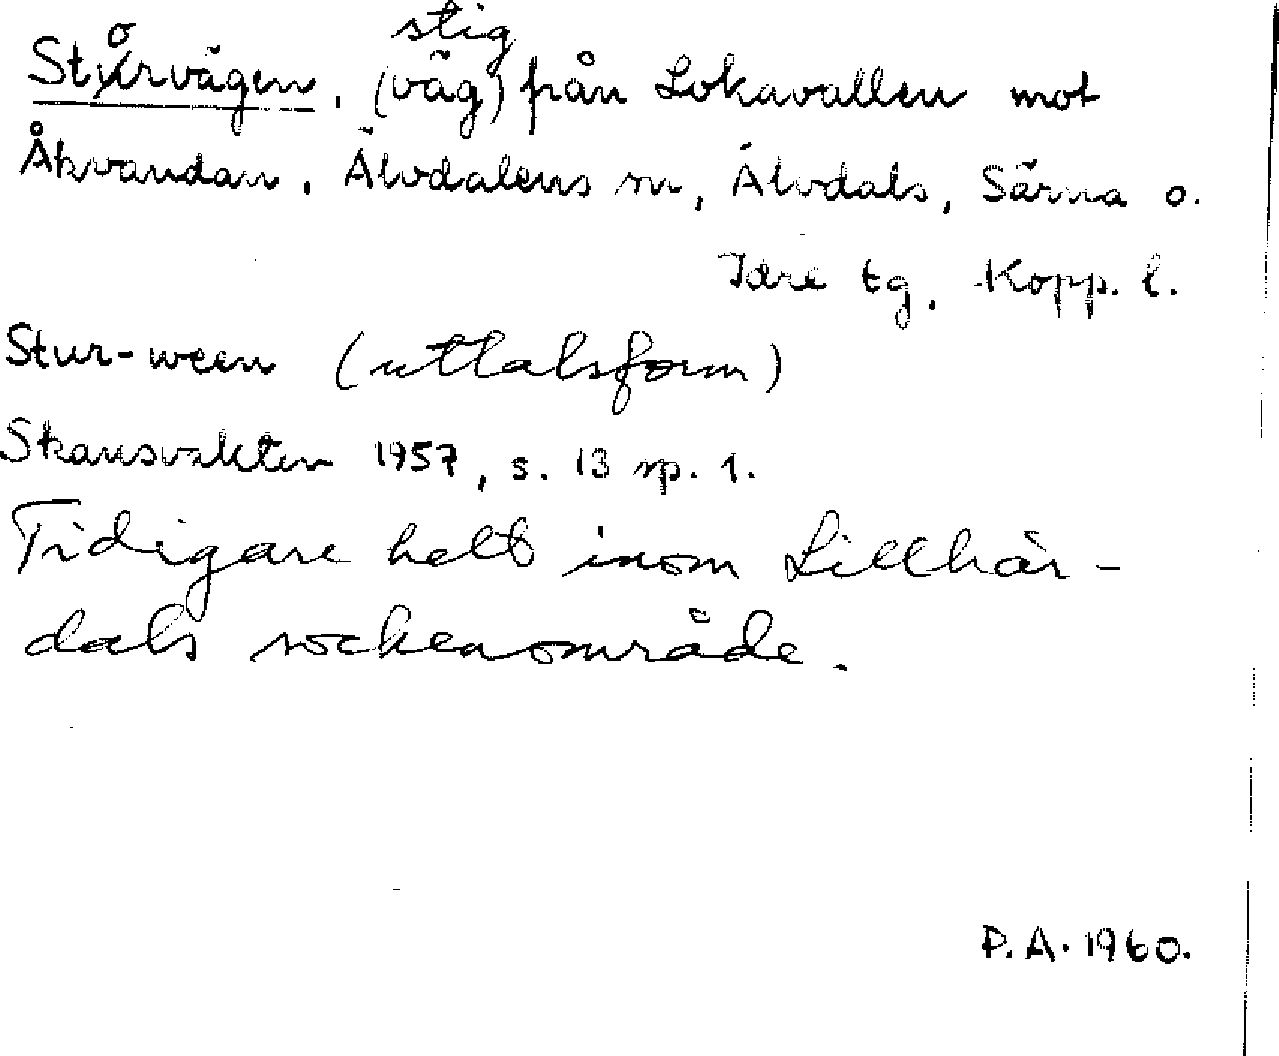 Storvägen, stig (väg) från Lokavallen mot
Åkvandan. Älvdalens sn, Älvdals, Särna o.
Idre tg, Kopp. l.
Stur-ween (uttalsform)
Skansvakten 1957, s. 13 sp. 1.
Tidigare helt inom Lillhär-
dals sockenområde.
P.A. 1960.